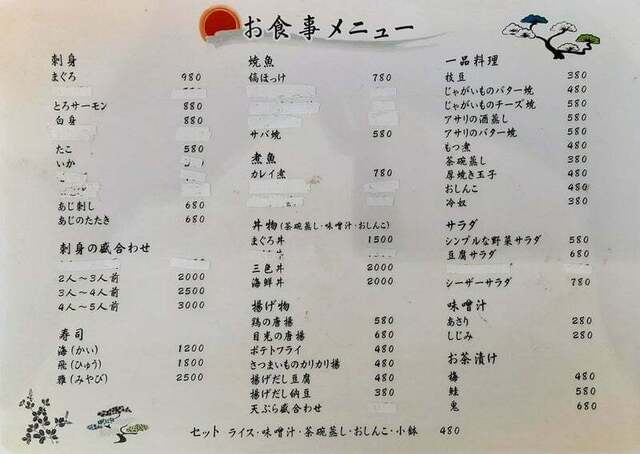 お食事メニュー
刺身
まぐろ 980
とろサーモン 880
白身 880
たこ 580
いか
あじ刺し 680
あじのたたき 680
刺身の盛合わせ
2人～3人前 2000
3人～4人前 2500
4人～5人前 3000
寿司
海(かい) 1200
飛(ひゅう) 1800
雅(みやび) 2500
焼魚
縞ほっけ 780
サバ焼 580
煮魚
カレイ煮 780
丼物(茶碗蒸し・味噌汁・おしんこ)
まぐろ丼 1500
三色丼 2000
海鮮丼 2000
揚げ物
鶏の唐揚 580
目光の唐揚 680
ポテトフライ 480
さつまいものカリカリ揚 480
揚げだし豆腐 480
揚げだし納豆 380
天ぷら盛合わせ
一品料理
枝豆 380
じゃがいものバター焼 480
じゃがいものチーズ焼 580
アサリの酒蒸し 480
アサリのバター焼 480
もつ煮 480
茶碗蒸し 380
厚焼き玉子 480
おしんこ 480
冷奴 380
サラダ
シンプルな野菜サラダ 580
豆腐サラダ 680
シーザーサラダ 780
味噌汁
あさり 280
しじみ 280
お茶漬け
梅 480
鮭 580
鬼 680
セット ライス・味噌汁・茶碗蒸し・おしんこ・小鉢 480